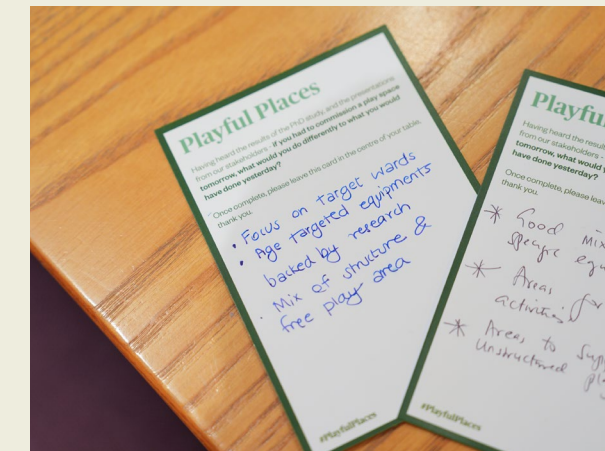 Playful Places
Having heard the results of the PND study, and the presentations
from our stakeholders - if you had to commission a play space
tomorrow, what would you do differently to what you would
have done yesterday?
Once complete, please leave this card in the centre of your table,
thank you.
• Focus on target wards
• Age targeted equipments
backed by research
• Mix of structure &
free play area
#PlayfulPlaces
Playfu
Having heard the resul
from our stakeholders -
tomorrow, what would y
have done yesterday?
Once complete, please leave
thank you.
* Good Mix
specific equ
* Areas for
activities
* Areas to Supp
unstructured pl
#PlayfulPlaces